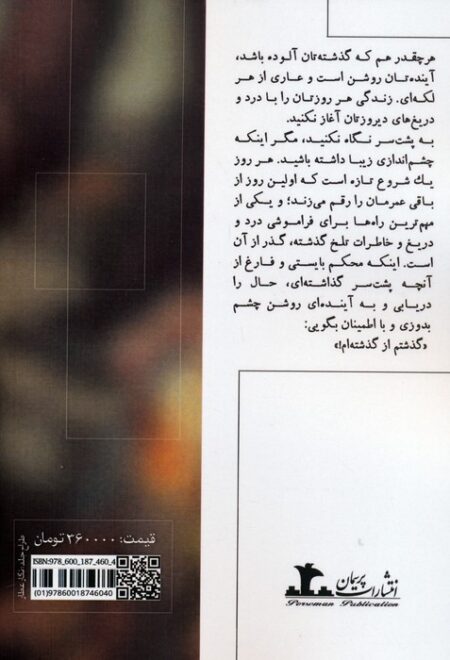 هرچقدر هم که گذشته‌تان آلوده باشد،
آینده‌تان روشن است و عاری از هر
لکه‌ای. زندگی هر روزتان را با درد و
دریغ‌های دیروزتان آغاز نکنید.
به پشت‌سر نگاه نکنید، مگر اینکه
چشم‌اندازی زیبا داشته باشید. هر روز
یك شروع تازه است که اولین روز از
باقی عمرمان را رقم می‌زند؛ و یکی از
مهم‌ترین راه‌ها برای فراموشی درد و
دریغ و خاطرات تلخ گذشته، گذر از آن
است. اینکه محکم بایستی و فارغ از
آنچه پشت‌سر گذاشته‌ای، حال را
دریابی و به آینده‌ای روشن چشم
بدوزی و با اطمینان بگویی:
«گذشتم از گذشته‌ام!»
انتشارات پریمان
Perseman Publication
قیمت: ۳۶۰۰۰۰ تومان
ISBN:978_600_187_460_4
(01)97860018746040
طراح جلد: نگار عطار